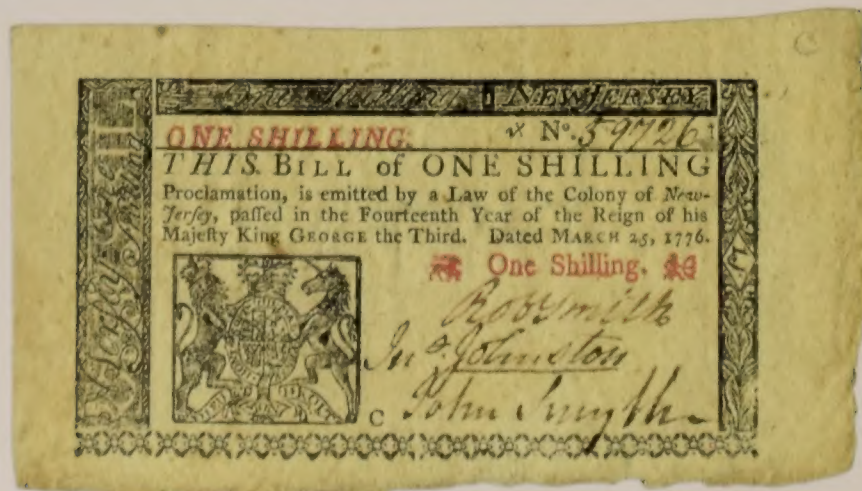 C
One Shilling NEW JERSEY
ONE SHILLING. No. 59726
THIS BILL of ONE SHILLING
Proclamation, is emitted by a Law of the Colony of New-
Jerſey, paſſed in the Fourteenth Year of the Reign of his
Majeſty King GEORGE the Third. Dated MARCH 25, 1776.
One Shilling.
Robt Smith
Jno. Johnston
C John Smyth